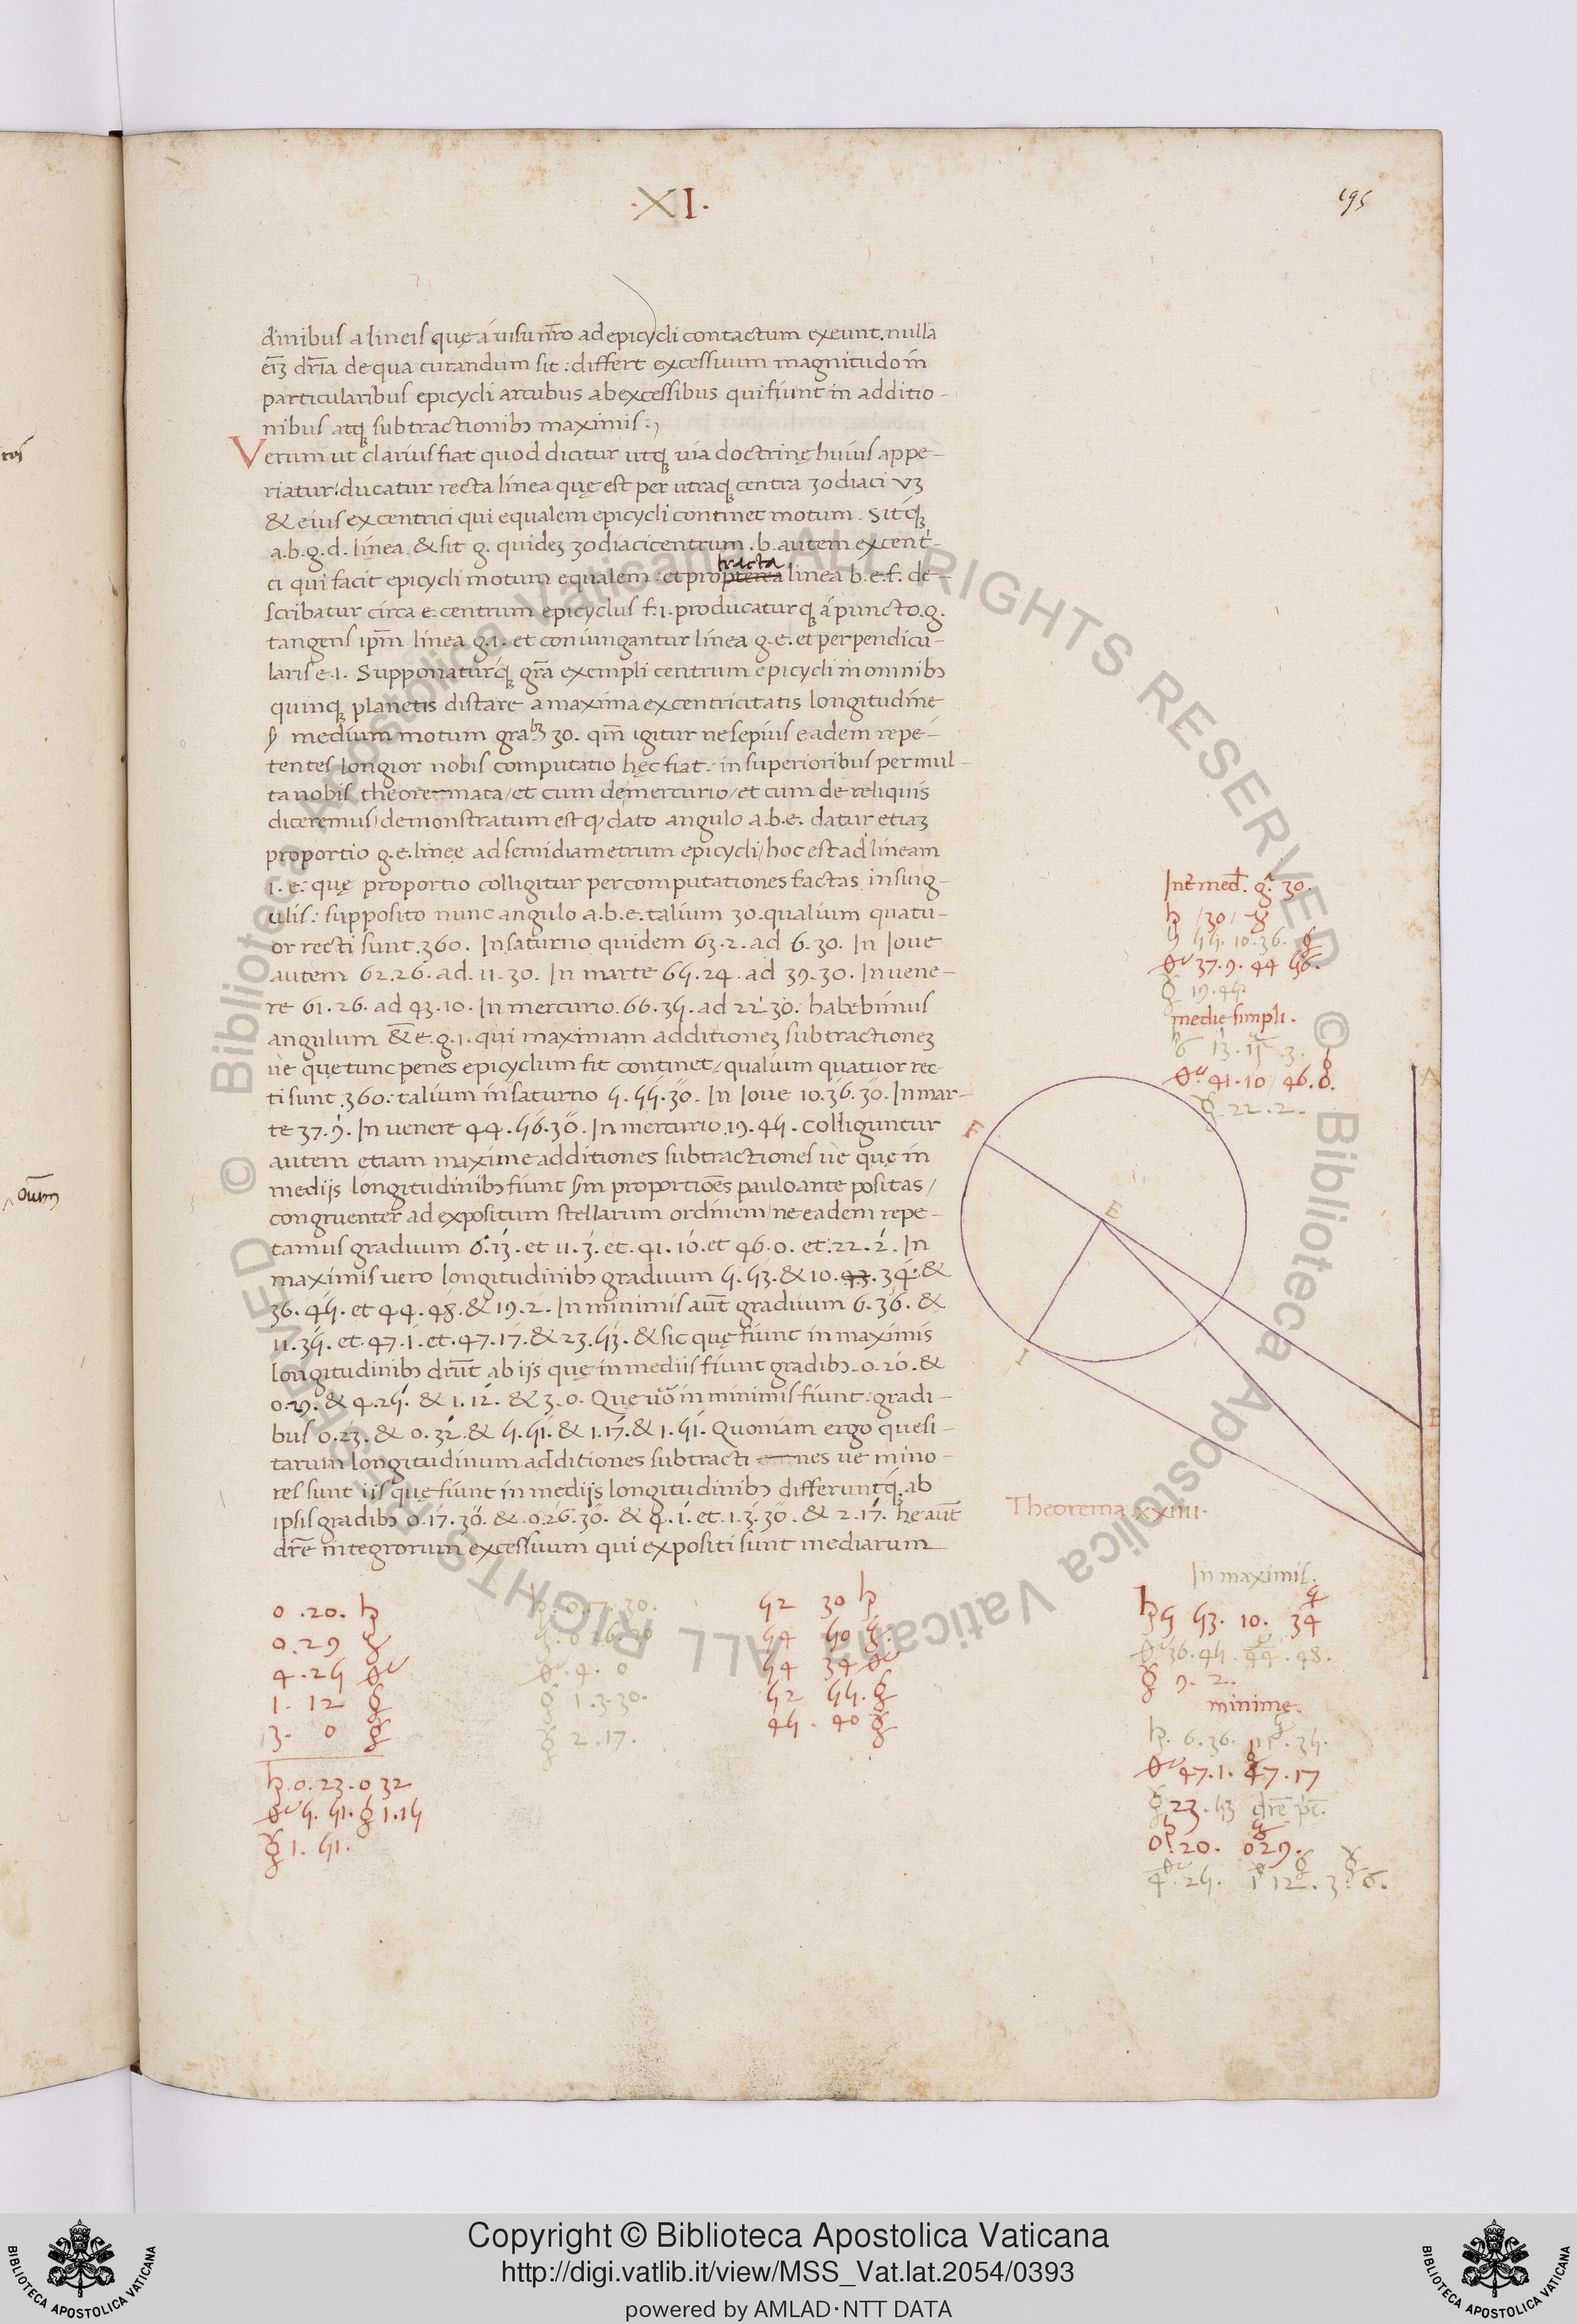 ·XI·
195
dinibus a lineis quę á uisu nr̄o ad epicycli contactum exeunt. nulla
eīʒ dr̄ia de qua curandum sit: differt excessuum magnitudo in
particularibus epicycli arcubus ab excessibus qui fiunt in additio-
nibus atqʒ subtractionibʒ maximis:,
Verum ut clarius fiat quod dicitur utqʒ uia doctrinę huius appe-
riatur: ducatur recta linea quę est per utraqʒ centra zodiaci uʒ
& eius excentrici qui equalem epicycli continet motum. Sitqʒ
a.b.g.d. linea. & sit g. quideʒ zodiaci centrum. b. autem excent-
ci qui facit epicycli motum equalem: et propterea tracta linea b.e.f. de-
scribatur circa e. centrum epicyclus f.i. producaturqʒ á puncto. g.
tangens ip̄m linea g.i. et coniungantur linea g.e. et perpendicu-
laris e.i. Supponaturqʒ grā exempli centrum epicycli in omnibʒ
quinqʒ planetis distare a maxima excentricitatis longitudine
ꝑ medium motum gra.bʒ 30. qm̄ igitur ne sepius eadem repe-
tentes longior nobis computatio hęc fiat: in superioribus permul-
ta nobis theoremata/ et cum de mercurio/ et cum de reliquis
diceremus/ demonstratum est qꝫ dato angulo a.b.e. datur etiaʒ
proportio g.e. lineę ad semidiametrum epicycli/ hoc est ad lineam
i.e. quę proportio colligitur per computationes factas in sing-
ulis: supposito nunc angulo a.b.e. talium 30. qualium quatu-
or recti sunt .360. In saturno quidem 63.2. ad 6.30. In Ioue
autem 62.26. ad .11.30. In marte 65.24. ad 39.30. In uene-
re 61.26. ad 43.10. In mercurio. 66.35. ad 22.30. habebimus
angulum & e.g.i. qui maximam additioneʒ subtractioneʒ
ue quę tunc penes epicyclum fit continet/ qualium quatuor rec-
ti sunt .360. talium in saturno 5.55.30. In Ioue 10.36.30. In mar-
te 37.9. In uenere 44.56.30. In mercurio .19.45. Colliguntur
autem etiam maxime additiones subtractiones ue quę in
medijs longitudinibʒ fiunt sm proportiōes paulo ante positas/
congruenter ad expositum stellarum ordinem/ ne eadem repe-
tamus graduum 6.13. et 11.3. et. 41.10. et 46.0. et. 22.2. In
maximis uero longitudinibʒ graduum 5.53. & 10. 43. 34. &
36.45. et 44.48. & 19.2. In minimis aūt graduum 6.36. &
11.35. et. 47.1. et. 47.17. & 23.53. & sic quę fiunt in maximis
longitudinibʒ drūt ab ijs quę in mediis fiunt gradibʒ. 0.20. &
0.29. & 4.25. & 1.12. & 3.0. Que uō in minimis fiunt: gradi-
bus 0.23. & 0.32. & 5.51. & 1.17. & 1.51. Quoniam ergo quesi-
tarum longitudinum additiones subtracti nes ue mino-
res sunt iis que fiunt in medijs longitudinibʒ differuntqʒ ab
ipsis gradibʒ 0.17.30. & .0.26.30. & 4.1. et. 1.3.30. & 2.17. he aūt
drē integrorum excessuum qui expositi sunt mediarum
Int̄ med̄. g. 30.
♄ /30/ ♃
5 55. 10.36.
♂ 37.9. 44 56.
☿ 19.45
medie simpli.
6 13. 11 .3.
♂ 41.10/ 46.0.
☿ 22.2.
A
F
E
I
B
G
Theorema xxiiii.
In maximis.
♄ 5 53. 10. 34
♂ 36.45. 44.48.
☿ 9. 2.
minime.
♄. 6.36. 11.35.
♂ 47.1. 47.17
☿ 23.53 drē pē.
0.20. 0 29.
4.25. 1 12. 3.0.
0.20. ♄
0.29 ♃
4.25 ♂
1. 12 ♀
3. 0 ☿
♄.0.23.0 32
♂ 5. 51. ♀ 1.15
☿ 1. 51.
♄ 0.17.30.
♃. 0 26.30
♂. 4. 0
♀ 1.3.30.
☿ 2.17.
52 30 ♄
54 50 ♃.
54 34 ♂
52 55. ♀
45. 40 ☿
Copyright © Biblioteca Apostolica Vaticana
http://digi.vatlib.it/view/MSS_Vat.lat.2054/0393
powered by AMLAD·NTT DATA
BIBLIOTECA APOSTOLICA VATICANA
BIBLIOTECA APOSTOLICA VATICANA
© Biblioteca Apostolica Vaticana ALL RIGHTS RESERVED © Biblioteca Apostolica Vaticana ALL RIGHTS RESERVED